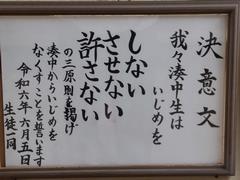 決意文
我々湊中生は
いじめを
しない
させない
許さない
の三原則を掲げ
湊中からいじめを
なくすことを誓います
令和六年六月五日
生徒一同